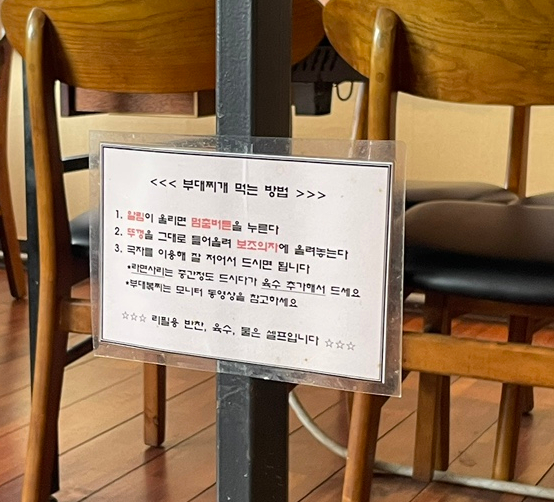 <<< 부대찌개 먹는 방법 >>>
1. 알림이 울리면 멈춤버튼을 누른다
2. 뚜껑을 그대로 들어올려 보조의자에 올려놓는다
3. 국자를 이용해 잘 저어서 드시면 됩니다
*라면사리는 중간정도 드시다가 육수 추가해서 드세요
*부대볶찌는 모니터 동영상을 참고하세요
☆☆☆ 리필용 반찬, 육수, 물은 셀프입니다 ☆☆☆